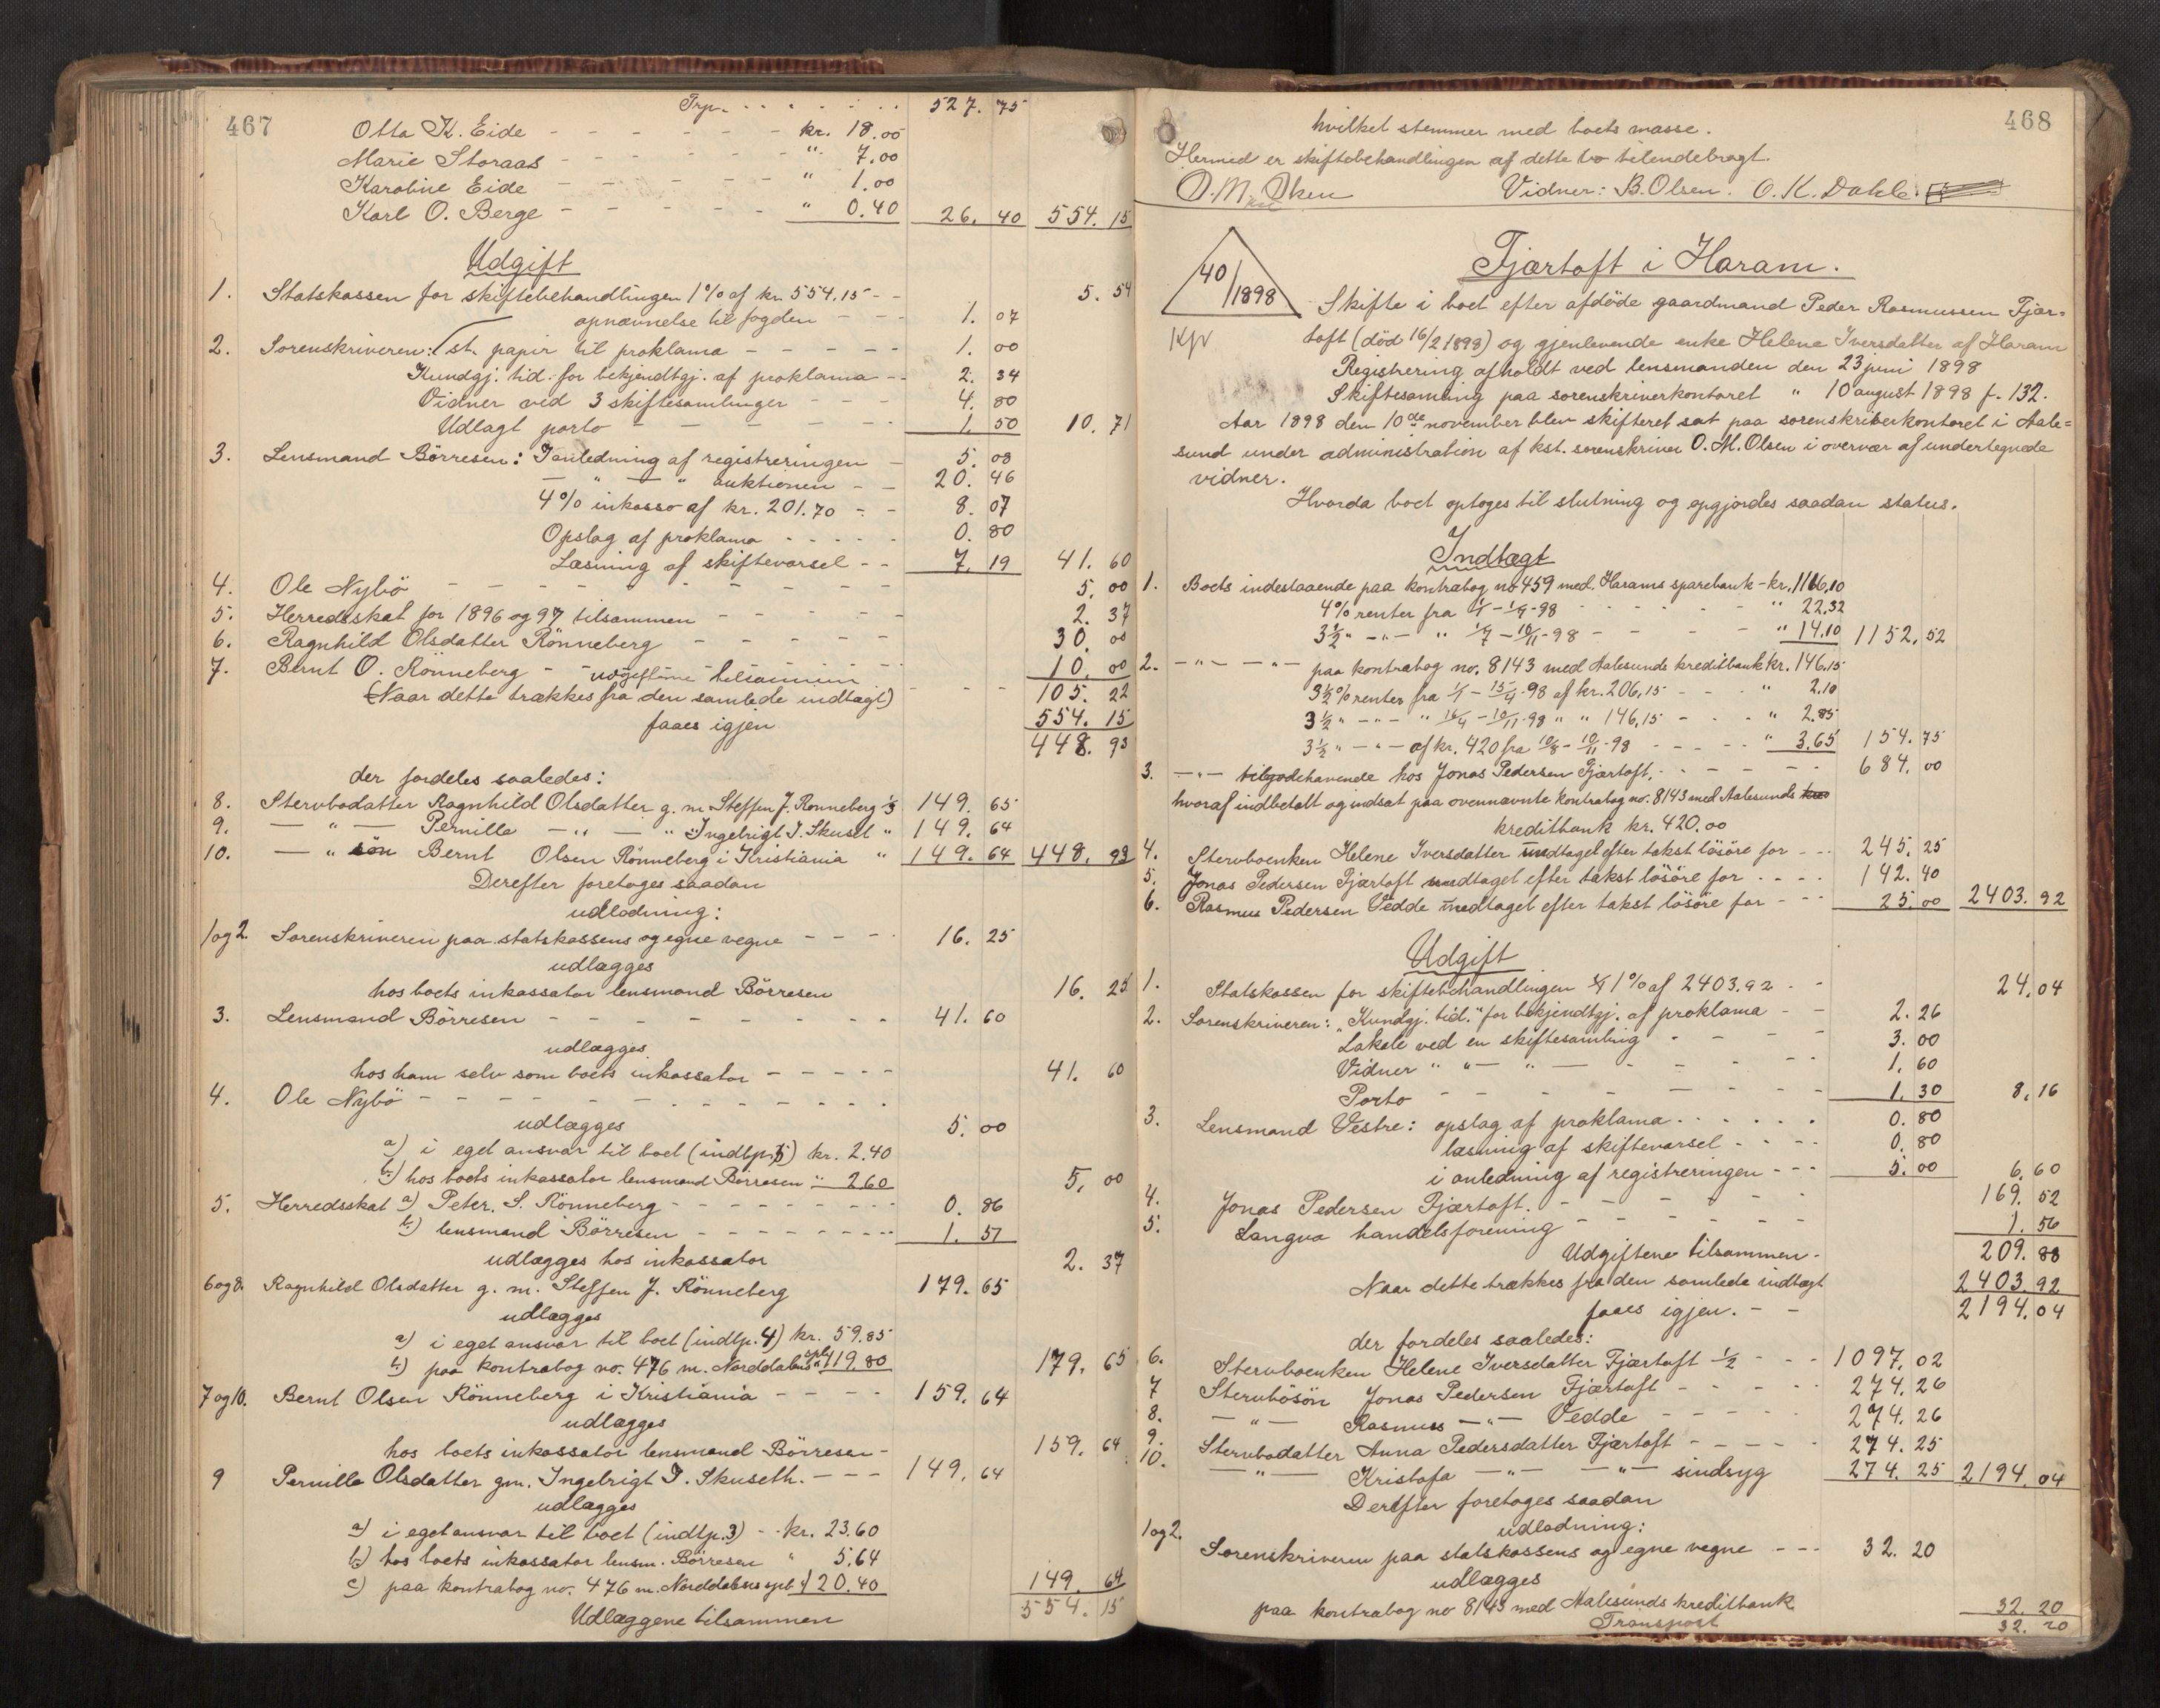 467
Trp. 527. 75
Otto K. Eide - - - - - - kr. 18.00
Marie Storaas - - - - - - " 7.00
Karoline Eide - - - - - - " 1.00
Karl O. Berge - - - - - " 0.40 26. 40 554. 15
Udgift
1. Statskassen for skiftebehandlingen 1% af kr. 554.15 - - 5. 54
opnævnelse til fogden - - - 1. 07
2. Sorenskriveren: st. papir til proklama - - - - - 1. 00
Kundgj. tid. for bekjendtgj. af proklama - - 2. 34
Vidner ved 3 skiftesamlinger - - - 4. 80
Udlagt porto - - - - - - 1. 50 10. 71
3. Lensmand Börresen: I anledning af registreringen - 5. 08
- " - " auktionen - - 20. 46
4% inkasso af kr. 201.70 - - 8. 07
Opslag af proklama - - - - - 0. 80
Læsning af skiftevarsel - - 7. 19 41. 60
4. Ole Nybö - - - - - - - - - 5. 00
5. Herredsskat for 1896 og 97 tilsammen - - - - - 2. 37
6. Ragnhild Olsdatter Rönneberg - - - - - 30. 00
7. Bernt O. Rönneberg - - - - - - 10. 00
udgifterne tilsammen - - - 105. 22
(Naar dette trækkes fra den samlede indtægt) 554. 15
faaes igjen 448. 93
der fordeles saaledes:
8. Stervbodatter Ragnhild Olsdatter g. m. Steffen J. Rönneberg 1/3 149. 65
9. - " - Pernille - " - " Ingebrigt I. Skuset " 149. 64
10. - " sön Bernt Olsen Rönneberg i Kristiania " 149. 64 448. 93
Derefter foretoges saadan
udlodning:
1 og 2. Sorenskriveren paa statskassens og egne vegne - - - 16. 25
udlægges
hos boets inkassator lensmand Börresen 16. 25
3. Lensmand Börresen - - - - - - - 41. 60
udlægges
hos ham selv som boets inkassator - - - - - 41. 60
4. Ole Nybö - - - - - - - - - -
udlægges 5. 00
a) i eget ansvar til boet (indtp. 5) kr. 2.40
b.) hos boets inkassator lensmand Börresen " 2.60 5. 00
5. Herredsskat a) Peter. S. Rönneberg - - - - - - - - 0. 86
b.) lensmand Börresen - - - - - - - - 1. 51
udlægges hos inkassator 2. 37
6 og 8. Ragnhild Olsdatter g. m. Steffen J. Rönneberg 179. 65
udlægges
a) i eget ansvar til boet (indtp. 4) kr. 59.85
b.) paa kontrabog no. 476 m. Norddalens spb. " 119.80 179. 65
7 og 10. Bernt Olsen Rönneberg i Kristiania - - - - 159. 64
udlægges
hos boets inkassator lensmand Börresen - 159. 64
9 Pernille Olsdatter gm. Ingebrigt I. Skuseth. - - - 149. 64
udlægges
a) i eget ansvar til boet (indtp. 3) - - kr. 23.60
b) hos boets inkassator lensm. Börresen " 5.64
c) paa kontrabog no. 476 m. Norddalens spb. " 120.40 149. 64
Udlæggene tilsammen 554. 15
468
hvilket stemmer med boets masse.
Hermed er skiftebehandlingen af dette bo tilendebragt.
O. M. Olsen Vidner: B. Olsen. O. K. Dahle.
40/1898
Fjærtoft i Haram.
Skifte i boet efter afdöde gaardmand Peder Rasmussen Fjær-
toft (död 16/2 1898) og gjenlevende enke Helene Iversdatter af Haram
Registrering afholdt ved lensmanden den 23 juni 1898
Skiftesamling paa sorenskriverkontoret " 10 august 1898 f. 132.
Aar 1898 den 10de november blev skifteret sat paa sorenskriverkontoret i Aale-
sund under administration af kst. sorenskriver O. M. Olsen i overvær af undertegnede
vidner.
Hvorda boet optoges til slutning og opgjordes saadan status.
Indtægt
1. Boets indestaaende paa kontrabog no 459 med Harams sparebank - kr. 1116,10
4% renter fra 1/1 - 1/7 - 98 - - - - - " 22,32
3 1/2 " - " - " 1/7 - 10/11 - 98 - - - - " 14.10 1152. 52
2. - " - - " - paa kontrabog no. 8143 med Aalesunds kreditbank kr. 146.15
3 1/2 % renter fra 1/1 - 15/4 - 98 af kr. 206,15 - - - " 2.10
3 1/2 " - " - " 16/4 - 10/11 - 98 " " 146.15 - - - " 2.85
3 1/2 " - " - af kr. 420 fra 10/8 - 10/11 - 98 - - - - " 3.65 154. 75
3. - " - tilgodehavende hos Jonas Pedersen Fjærtoft. - - - - - 684. 00
hvoraf indbetalt og indsat paa ovennævnte kontrabog no. 8143 med Aalesunds
kreditbank kr. 420.00
4. Stervboenken Helene Iversdatter modtaget efter takst lösöre for - - - 245. 25
5. Jonas Pedersen Fjærtoft modtaget efter takst lösöre for - - - - 142. 40
6. Rasmus Pedersen Vedde modtaget efter takst lösöre for - - - 25. 00 2403. 92
Udgift
1. Statskassen for skiftebehandlingen 1% af 2403.92 - - 24.04
2. Sorenskriveren: "Kundgj. tid." for bekjendtgj. af proklama - - 2. 26
Lokale ved en skiftesamling - - - - 3. 00
Vidner " " - " - - - - - 1. 60
Porto - - - - - - - - 1. 30 8. 16
3. Lensmand Vestre: opslag af proklama - - - - - - 0. 80
læsning af skiftevarsel - - - - 0. 80
i anledning af registreringen - - - 5. 00 6. 60
4. Jonas Pedersen Fjærtoft. - - - - - - - 169. 52
5. Langva handelsforening - - - - - - 1. 56
Udgiftene tilsammen - 209. 88
Naar dette trækkes fra den samlede indtægt 2403. 92
faaes igjen. - - 2194. 04
der fordeles saaledes:
6. Stervboenken Helene Iversdatter Fjærtoft 1/2 - - - 1097. 02
7 Stervbösön Jonas Pedersen Fjærtoft - - - - - 274. 26
8. - " - Rasmus - " - Vedde - - - - - 274. 26
9. Stervbodatter Anna Pedersdatter Fjærtoft - - - - - 274. 25
10. - " - Kristofa - " - - " - sindsyg 274. 25 2194. 04
Derefter foretoges saadan
udlodning:
1 og 2. Sorenskriveren paa statskassens og egne vegne - - - 32. 20
udlægges
paa kontrabog no 8143 med Aalesunds kreditbank 32. 20
Transport 32. 20